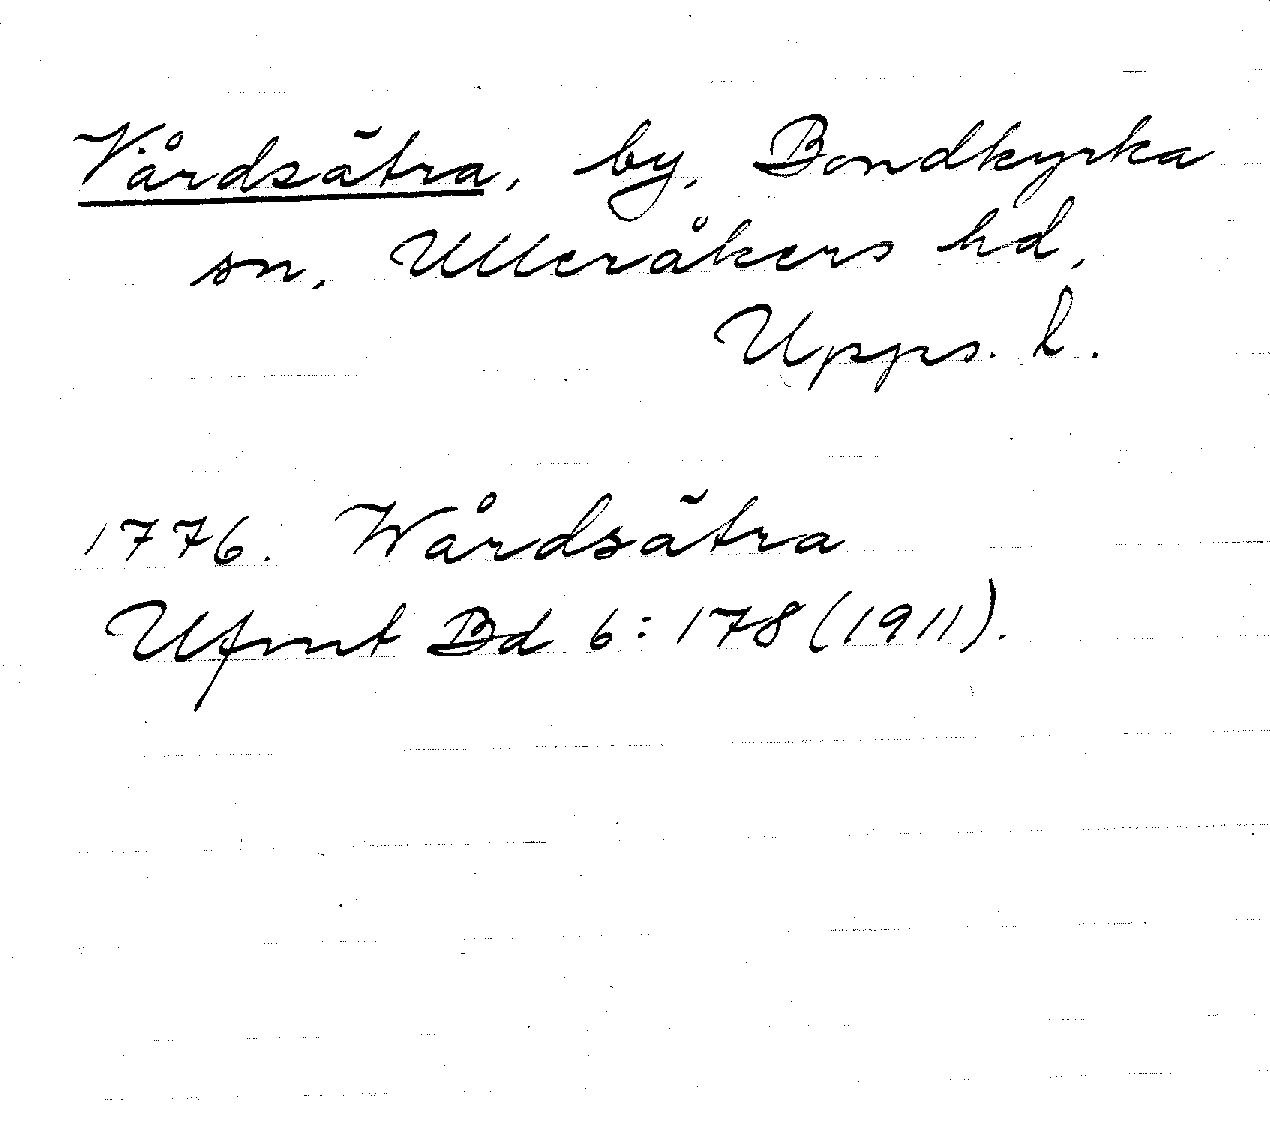 Vårdsätra, by, Bondkyrka
sn, Ulleråkers hd,
Upps. l.
1776. Wårdsätra
Ufmt Bd 6:178 (1911).